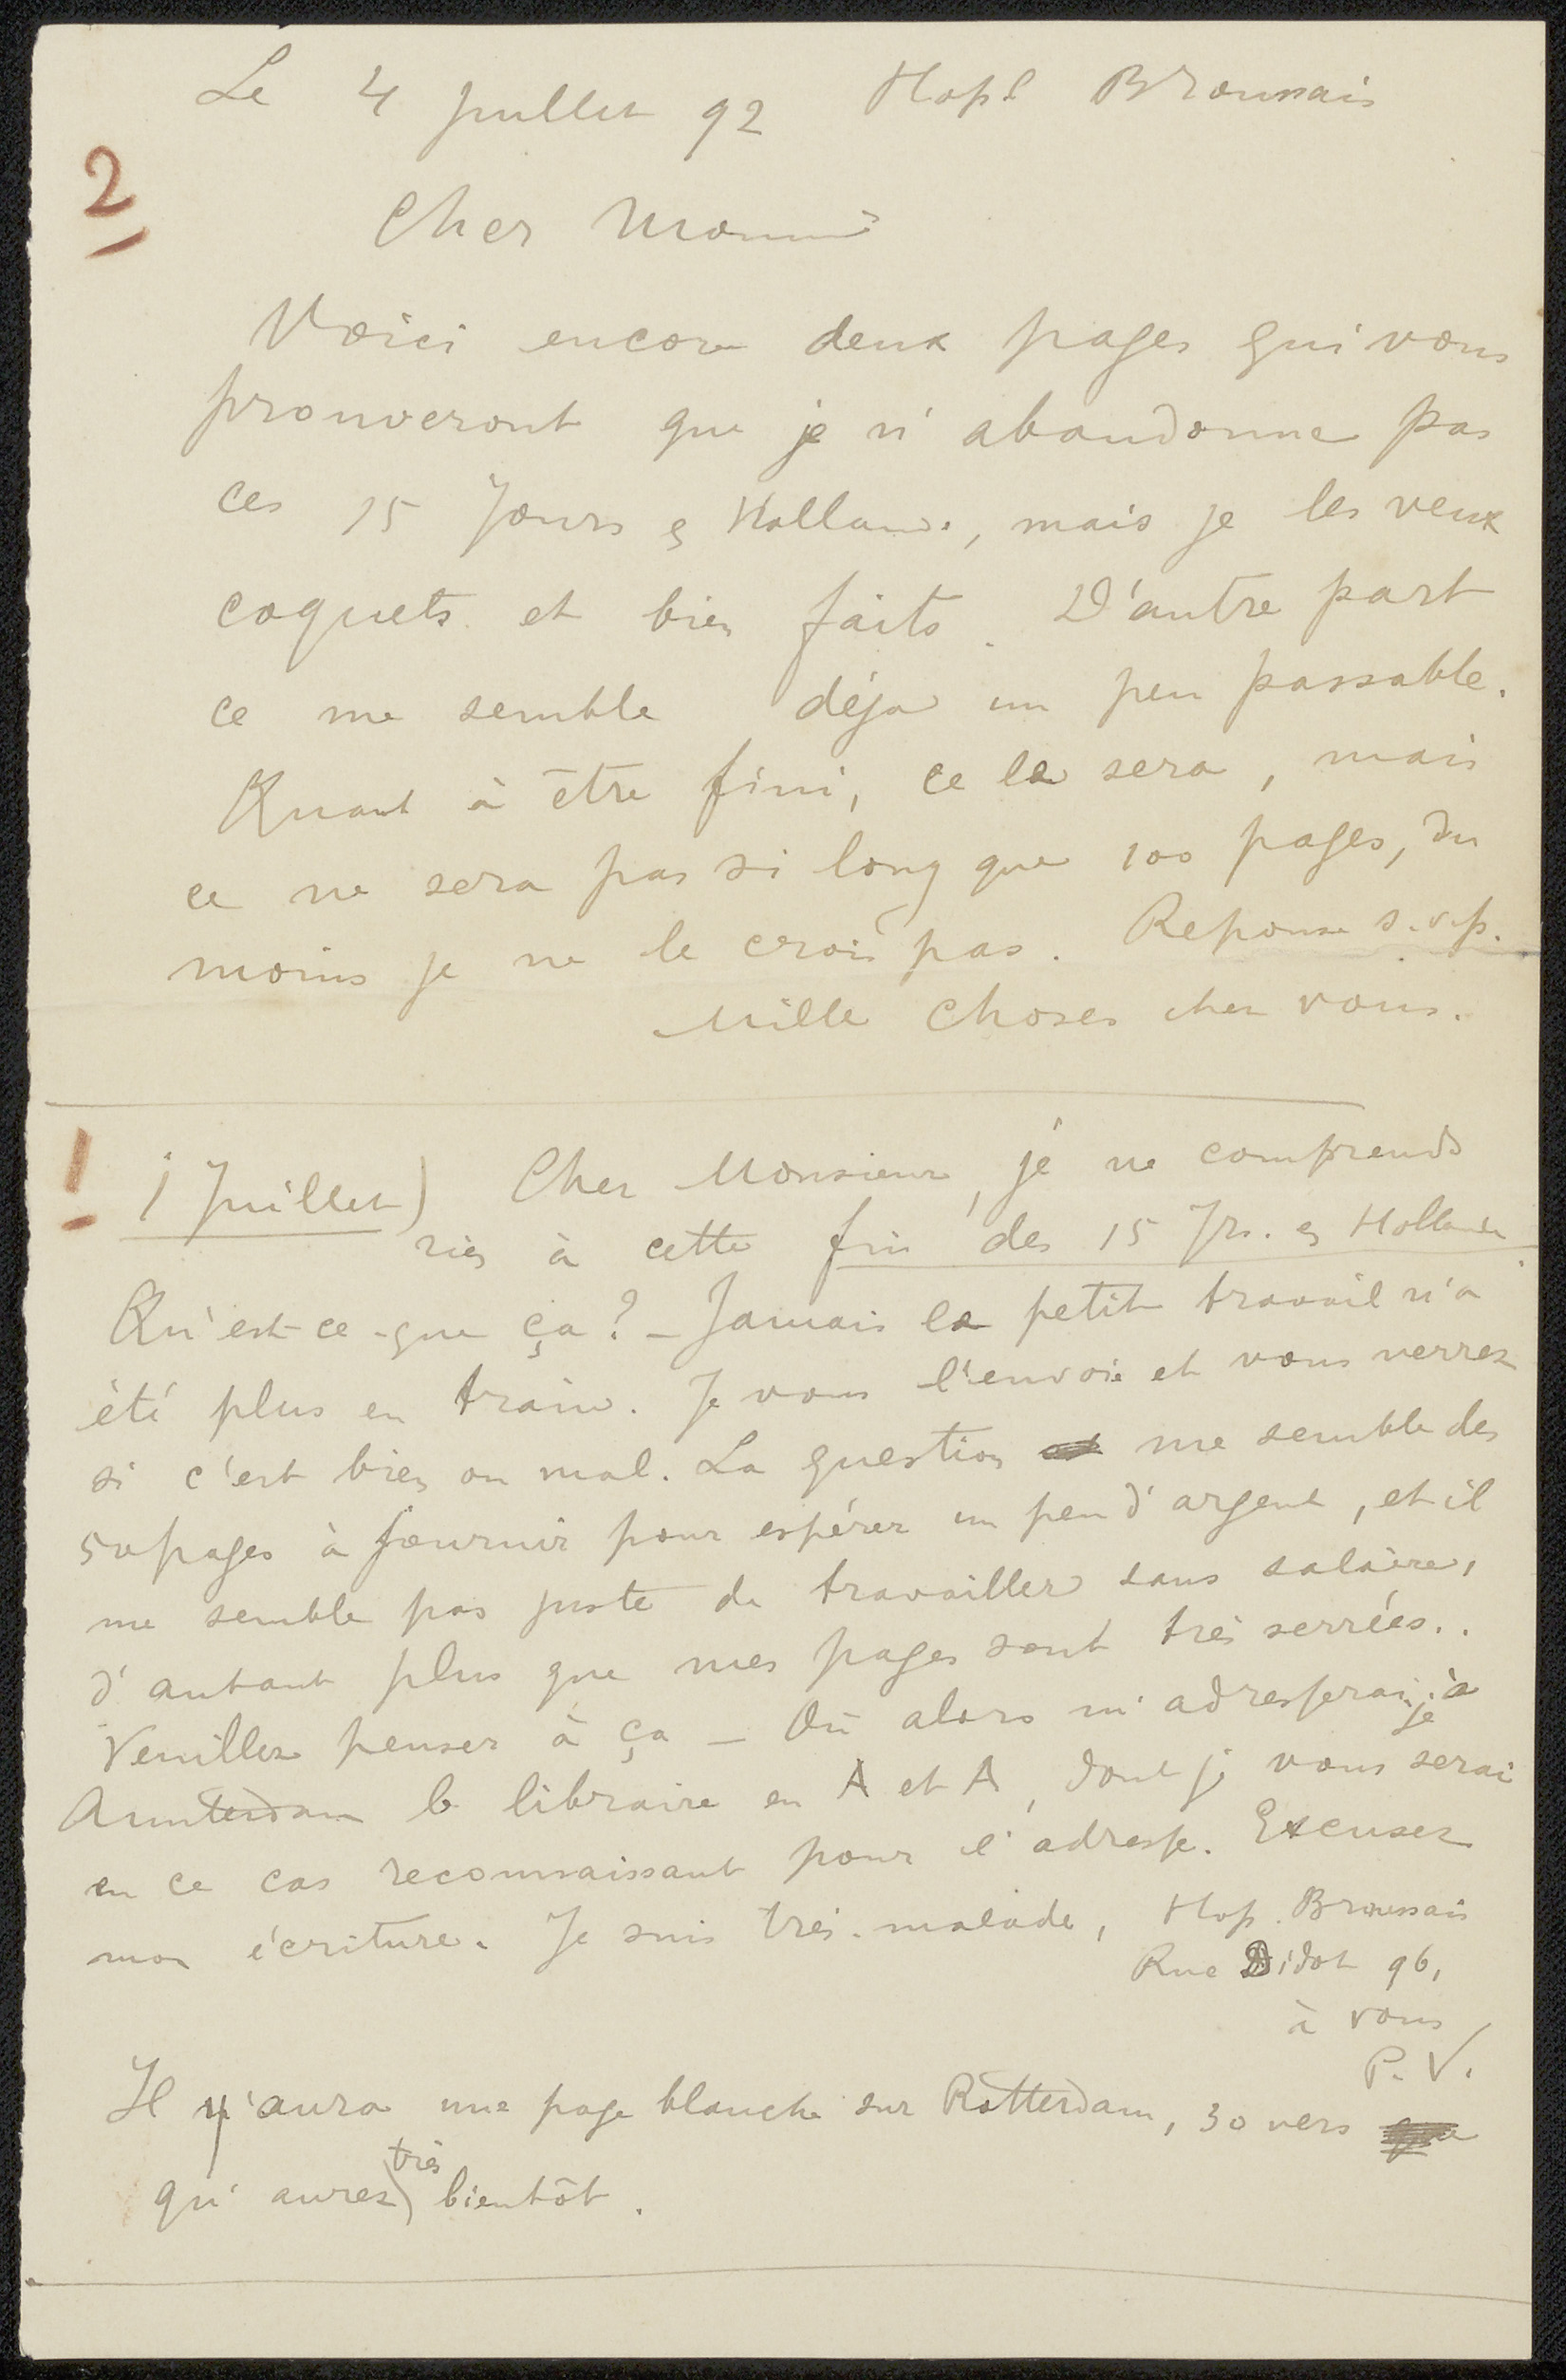 Le 4 juillet 92 Hopl Broussais
2
Cher Monsr
Voici encore deux pages qui vous
prouveront que je n'abandonne pas
ces 15 Jours en Hollande, mais je les veux
coquets et bien faits. D'autre part
ce me semble déja un peu passable.
Quant à être fini, ce le sera, mais
ce ne sera pas si long que 100 pages, du
moins je ne le crois pas. Reponse s.v.p.
Mille choses chez vous.
1
1 Juillet) Cher Monsieur, je ne comprends
rien à cette fin des 15 Jrs. en Hollande
Qu'est-ce-que ça? – Jamais le petit travail n'a
été plus en train. Je vous l'envoie et vous verrez
si c'est bien ou mal. La question me semble des
50 pages à fournir pour espérer un peu d'argent, et il
me semble pas juste de travailler sans salaire,
d'autant plus que mes pages sont très serrées..
Veuillez penser à ça – Où alors m'adresserai je à
Amsterdam le libraire en A et A, dont je vous serai
en ce cas reconnaissant pour l'adresse. Excusez
mon écriture. Je suis très malade, Hop. Broussais
Rue Didot 96,
à vous
P. V.
Il y'aura une page blanche sur Rotterdam, 30 vers
qu'aurez très bientôt.